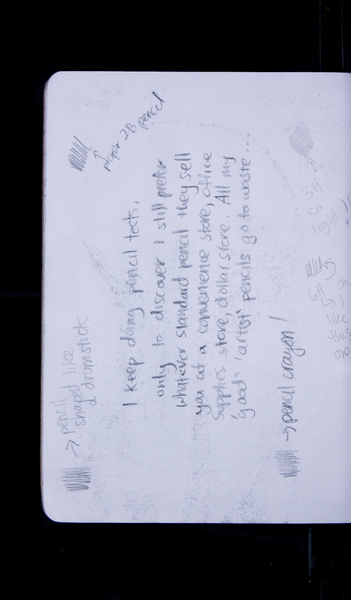 → pencil
shaped like
a drumstick
pencil
I keep doing pencil tests,
only to discover I still prefer
whatever standard pencil they sell
you at a convenience store, office
supplies store, dollar store. All my
'good' 'artist' pencils go to waste...
→ pencil crayon!
3H
so
light